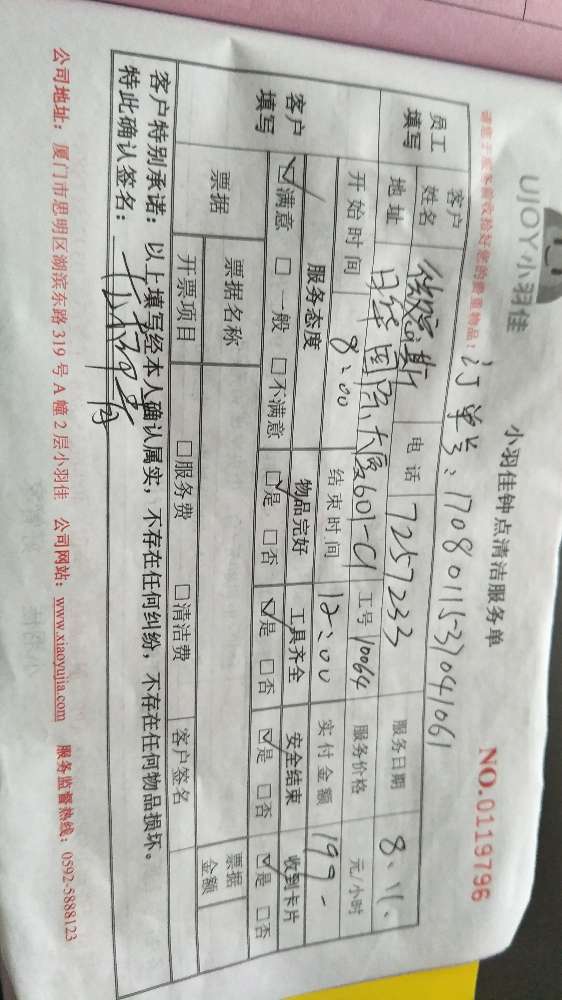 UJOY小羽佳
小羽佳钟点清洁服务单
NO.0119796
请您于服务前收拾好您的贵重物品！
订单号：1708011537041061
员工填写
客户姓名
电话 7257233
服务日期 8.11.
地址 日华国际大厦601-C1
工号 10064
服务价格 元/小时
开始时间 8:00
结束时间 12:00
实付金额 199-
客户填写
服务态度 物品完好 工具齐全 安全结束 收到卡片
☑满意 □一般 □不满意 ☑是 □否 ☑是 □否 ☑是 □否 ☑是 □否
票据
票据名称
票据金额
开票项目 □服务费 □清洁费 客户签名
客户特别承诺：以上填写经本人确认属实，不存在任何纠纷，不存在任何物品损坏。
特此确认签名：
公司地址：厦门市思明区湖滨东路319号A幢2层小羽佳 公司网站：www.xiaoyujia.com 服务监督热线：0592-5888123